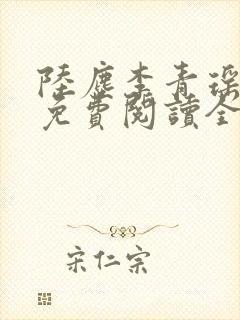 陸塵李青瑤
免費閱讀全
宋仁宗